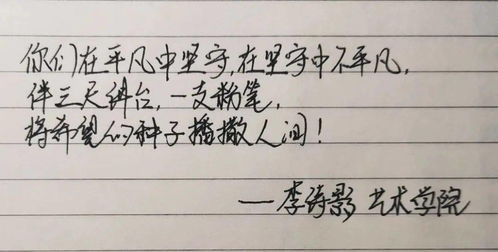 你们在平凡中坚守,在坚守中不平凡,
伴三尺讲台,一支粉笔,
将希望的种子播撒人间!
—李诗影 艺术学院